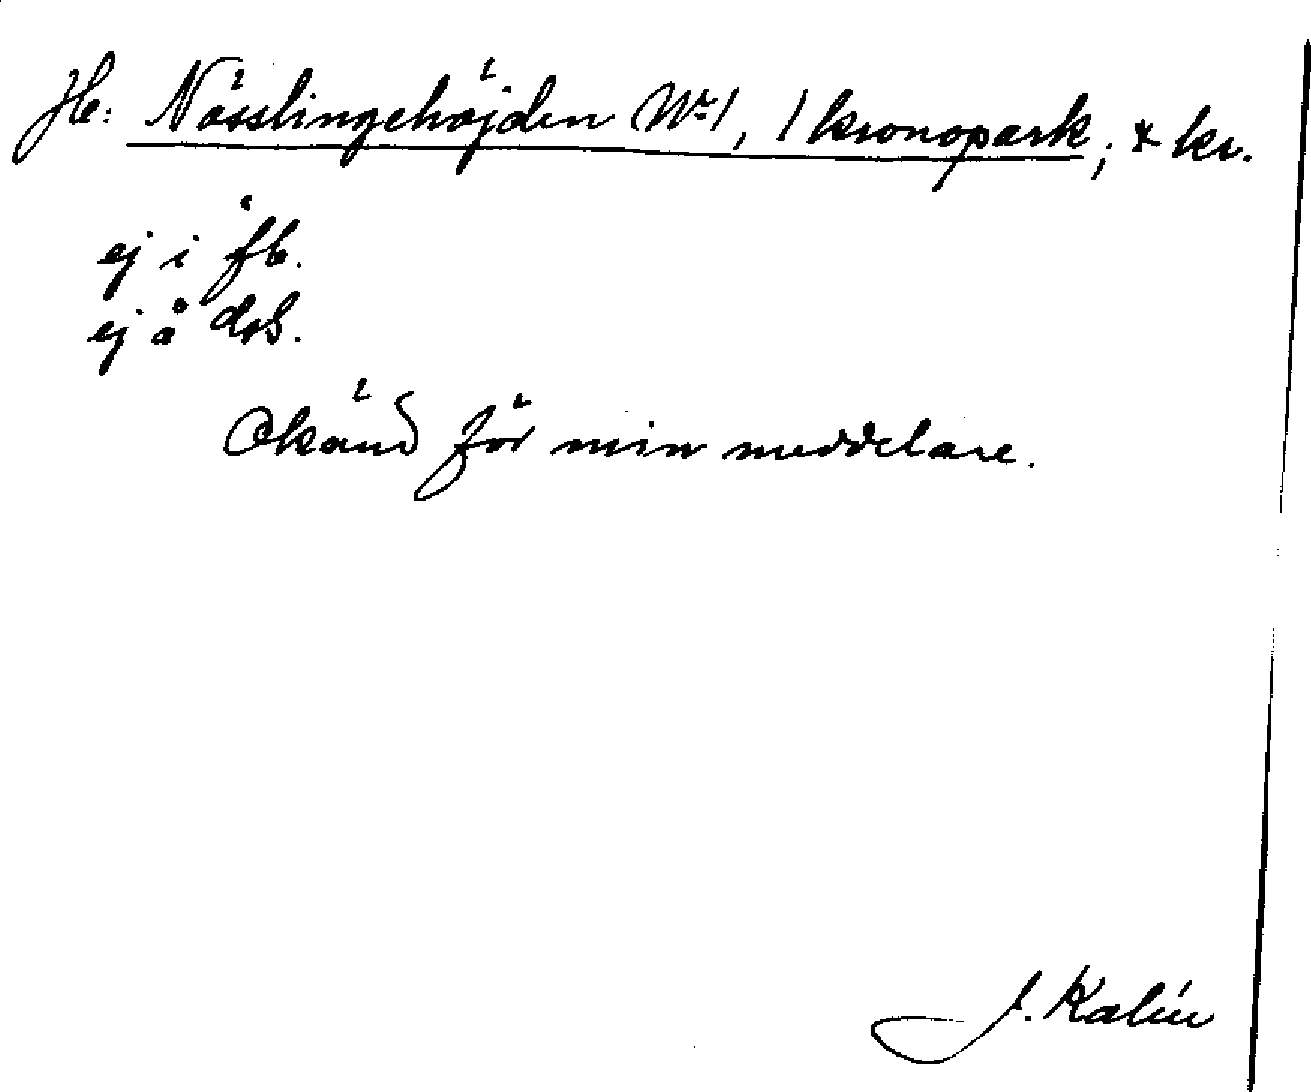 He: Nässlingehöjden Nr 1, 1 kronopark, * kr.
ej i fb.
ej å dss.
Okänd för min meddelare.
J. Kalén